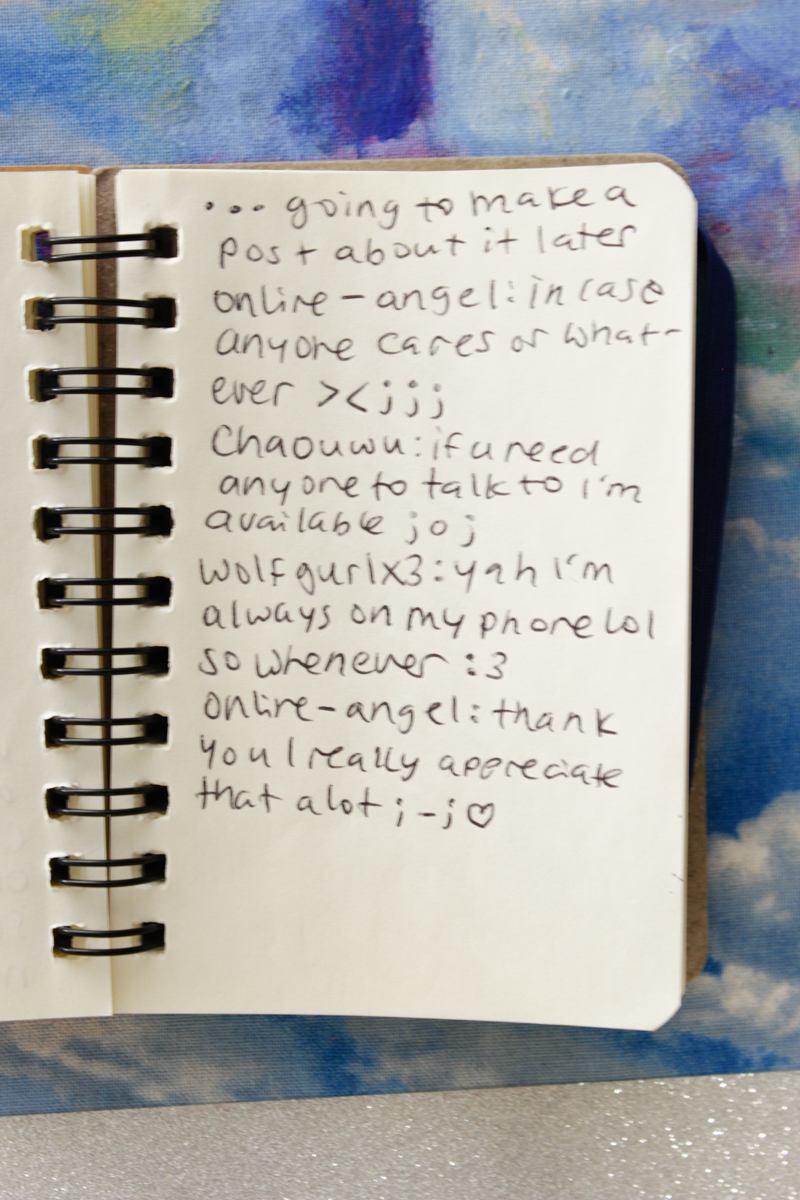 ... going to make a
post about it later
online-angel: in case
anyone cares or what-
ever ><;;;
Chaouwu: if u need
anyone to talk to i'm
available ;o;
wolfgurlx3: yah i'm
always on my phone lol
so whenever :3
online-angel: thank
you I really appreciate
that alot ;-;♡